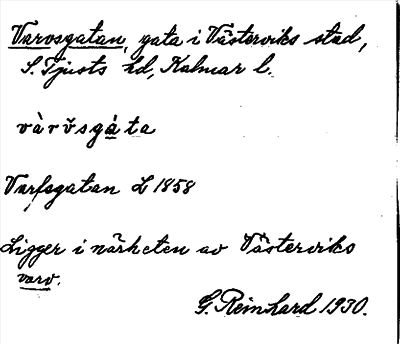 Varvsgatan, gata i Västerviks stad,
S. Tjusts hd, Kalmar l.
vàrv̆sgá̱ta
Varfsgatan L 1858
Ligger i närheten av Västerviks
varv.
G. Reinhard 1930.